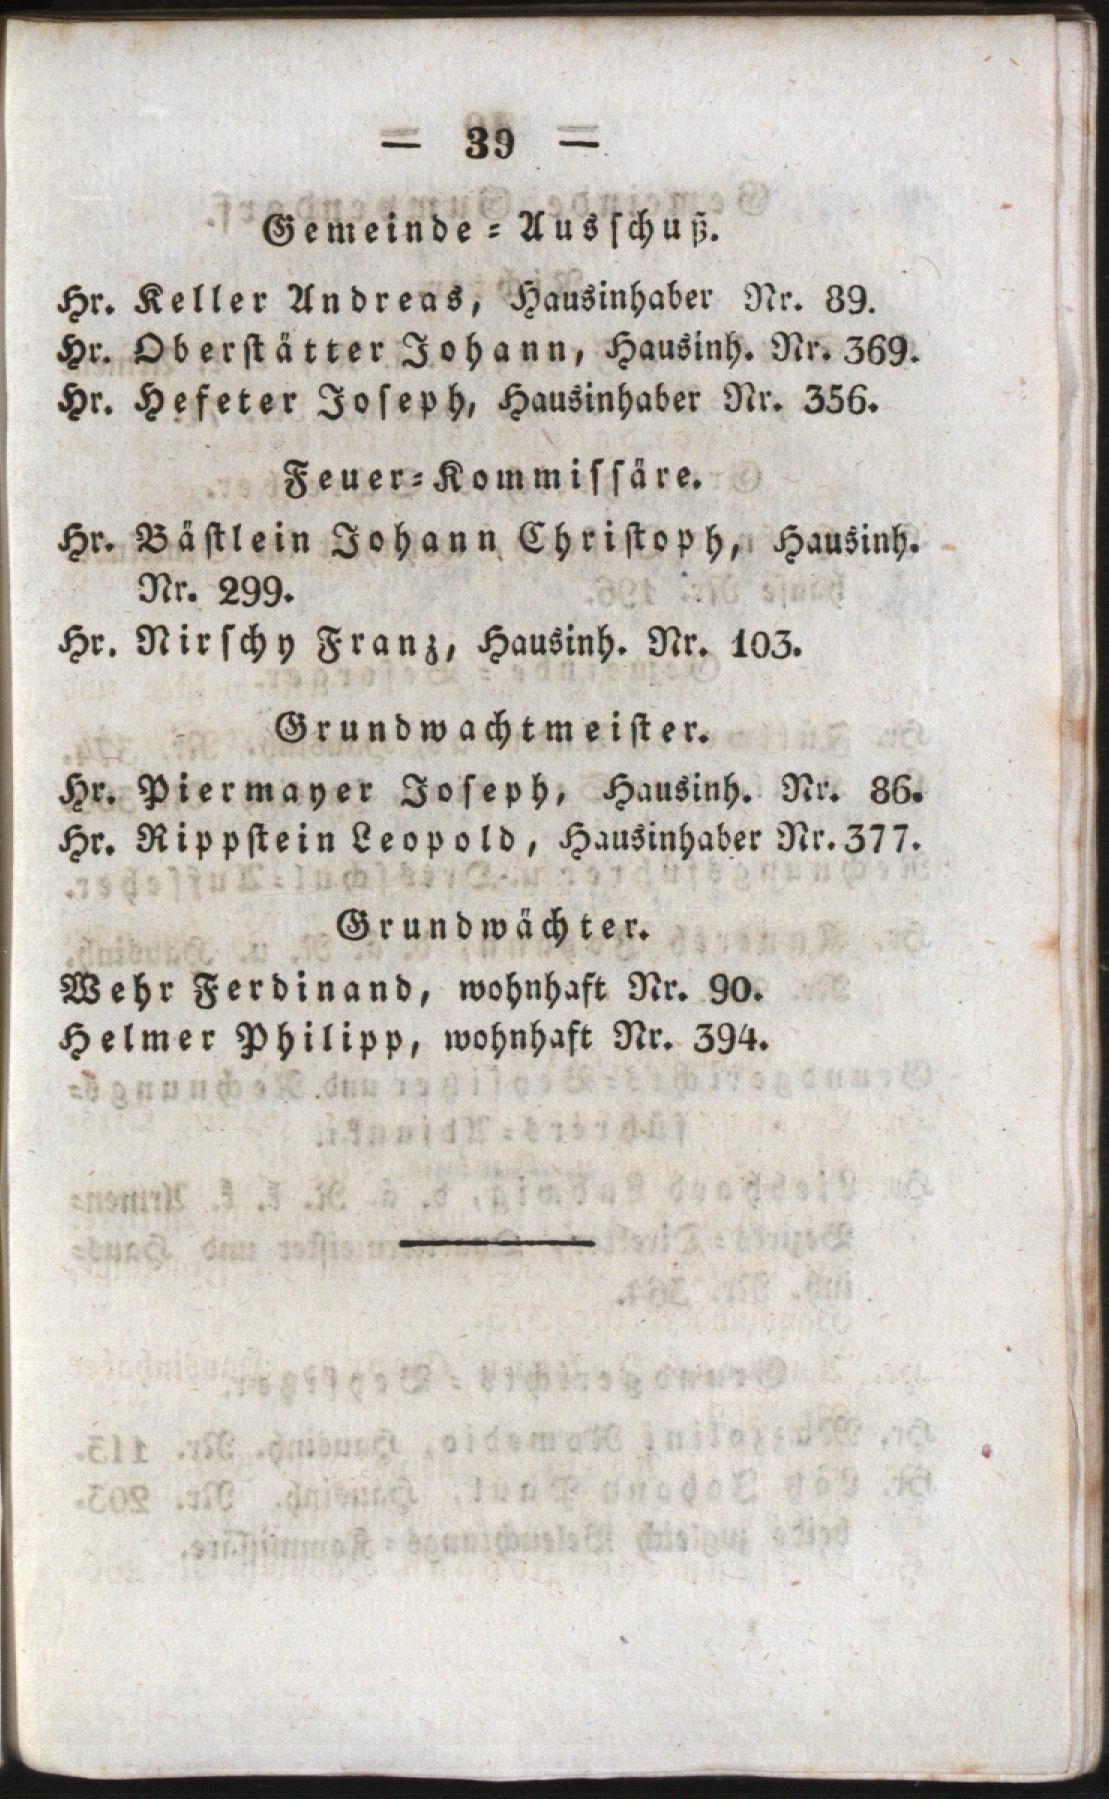 = 39 =
Gemeinde=Ausschuß.
Hr. Keller Andreas, Hausinhaber Nr. 89.
Hr. Oberstätter Johann, Hausinh. Nr. 369.
Hr. Hefeter Joseph, Hausinhaber Nr. 356.
Feuer=Kommissäre.
Hr. Bästlein Johann Christoph, Hausinh.
Nr. 299.
Hr. Nirschy Franz, Hausinh. Nr. 103.
Grundwachtmeister.
Hr. Piermayer Joseph, Hausinh. Nr. 86.
Hr. Rippstein Leopold, Hausinhaber Nr. 377.
Grundwächter.
Wehr Ferdinand, wohnhaft Nr. 90.
Helmer Philipp, wohnhaft Nr. 394.